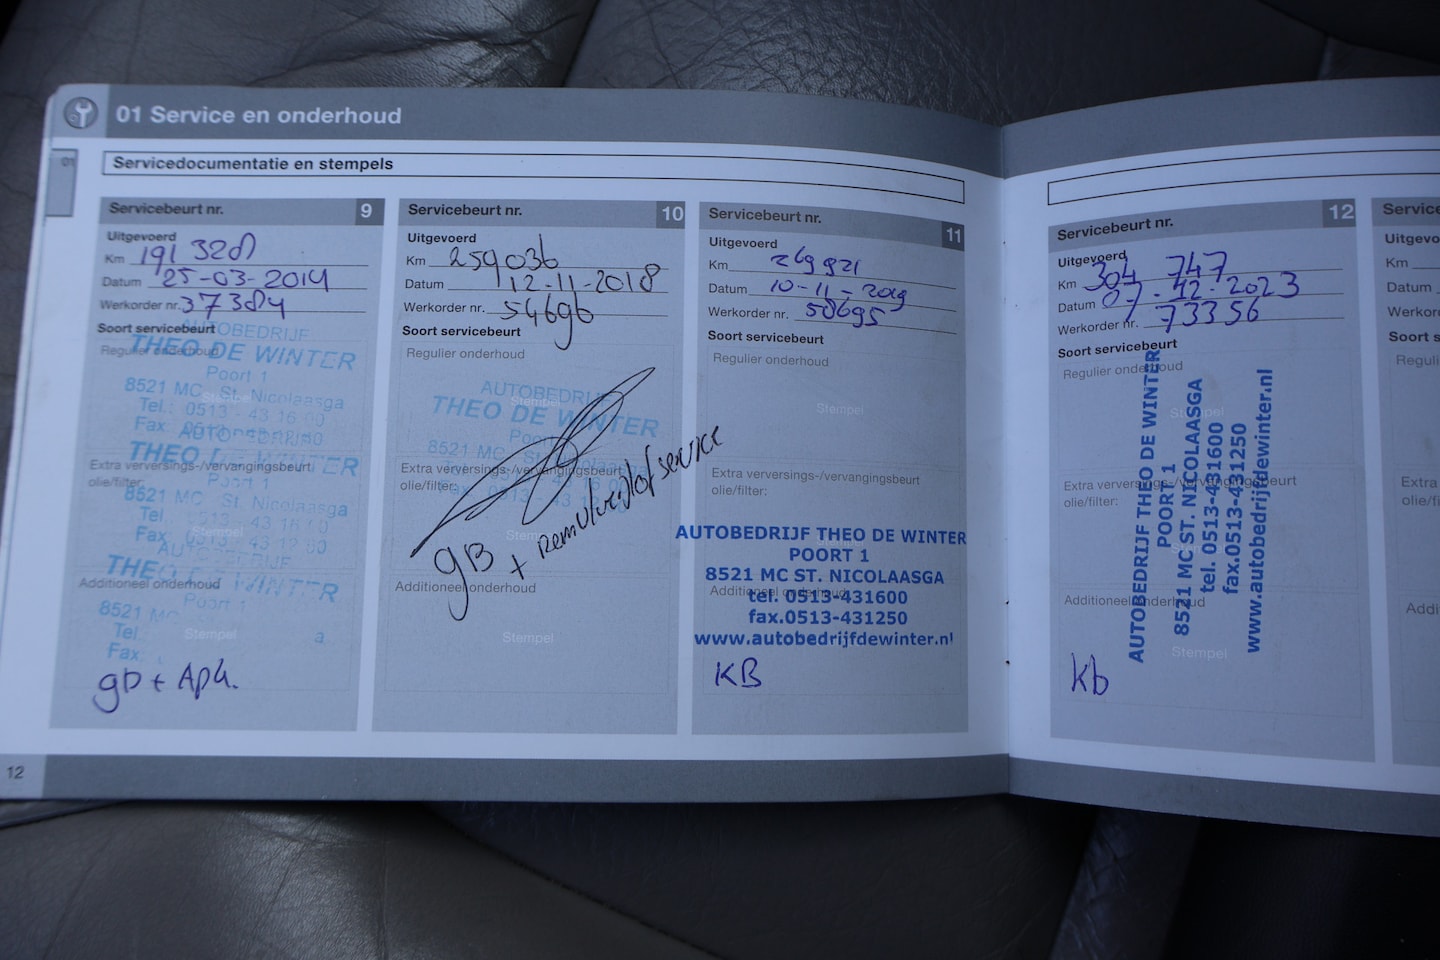 01 Service en onderhoud
01
Servicedocumentatie en stempels
Servicebeurt nr. 9
Uitgevoerd
Km 191 328
Datum 25-03-2014
Werkorder nr. 37384
Soort servicebeurt
Regulier onderhoud
AUTOBEDRIJF
THEO DE WINTER
Poort 1
8521 MC St. Nicolaasga
Tel.: 0513 - 43 16 00
Fax:
Stempel
AUTOBEDRIJF
THEO DE WINTER
Poort 1
Extra verversings-/vervangingsbeurt
olie/filter:
8521 MC St. Nicolaasga
Tel.: 0513 - 43 16 00
Fax: 0513 - 43 12 50
Stempel
AUTOBEDRIJF
THEO DE WINTER
Poort 1
Additioneel onderhoud
8521 MC
Tel.
Fax.
Stempel
gb + Apk.
Servicebeurt nr. 10
Uitgevoerd
Km 259036
Datum 12-11-2018
Werkorder nr. 54696
Soort servicebeurt
Regulier onderhoud
AUTOBEDRIJF
Stempel
THEO DE WINTER
Poort 1
8521 MC St. Nicolaasga
Extra verversings-/vervangingsbeurt
olie/filter:
Stempel
gB + Remvloeistof service
Additioneel onderhoud
Stempel
Servicebeurt nr. 11
Uitgevoerd
Km 269921
Datum 10-11-2019
Werkorder nr. 58695
Soort servicebeurt
Regulier onderhoud
Stempel
Extra verversings-/vervangingsbeurt
olie/filter:
AUTOBEDRIJF THEO DE WINTER
POORT 1
8521 MC ST. NICOLAASGA
Additioneel onderhoud
tel. 0513-431600
fax.0513-431250
www.autobedrijfdewinter.nl
KB
12
Servicebeurt nr. 12
Uitgevoerd
Km 304 747
Datum 07-12-2023
Werkorder nr. 73356
Soort servicebeurt
Regulier onderhoud
Stempel
Extra verversings-/vervangingsbeurt
olie/filter:
Additioneel onderhoud
Stempel
AUTOBEDRIJF THEO DE WINTER
POORT 1
8521 MC ST. NICOLAASGA
tel. 0513-431600
fax.0513-431250
www.autobedrijfdewinter.nl
kb
Service
Uitgevo
Km
Datum
Werkor
Soort s
Reguli
Extra v
olie/fi
Addi